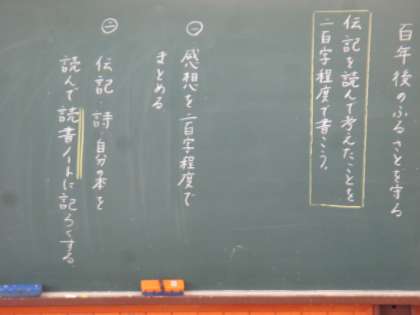 百年後のふるさとを守る
伝記を読んで考えたことを
二百字程度で書こう。
㊀ 感想を二百字程度で
まとめる
㊁ 伝記・詩・自分の本を
読んで読書ノートに記ろくする。